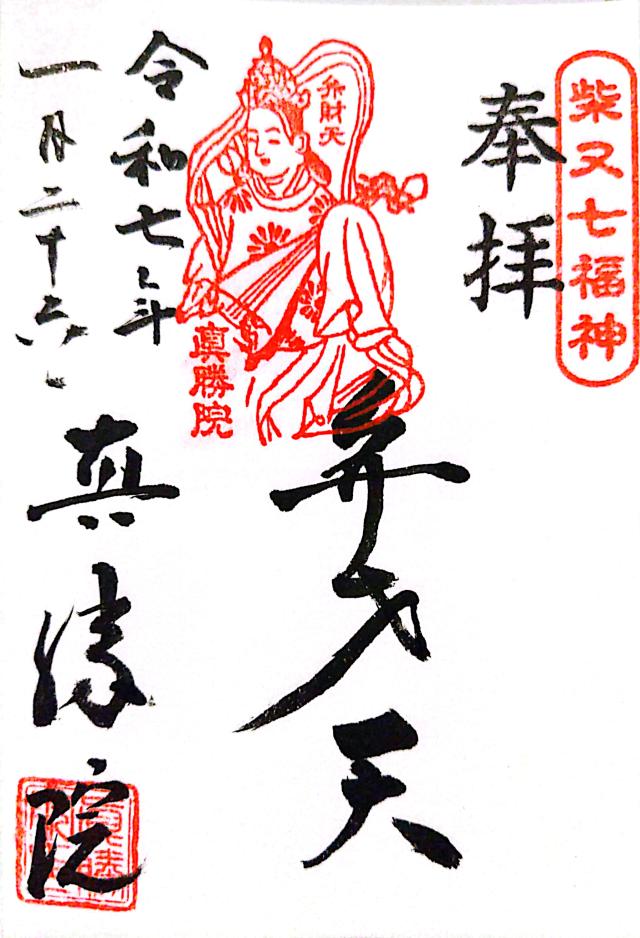 柴又七福神
奉拝
弁財天
弁才天
眞勝院
令和七年
一月二十六日
真勝院